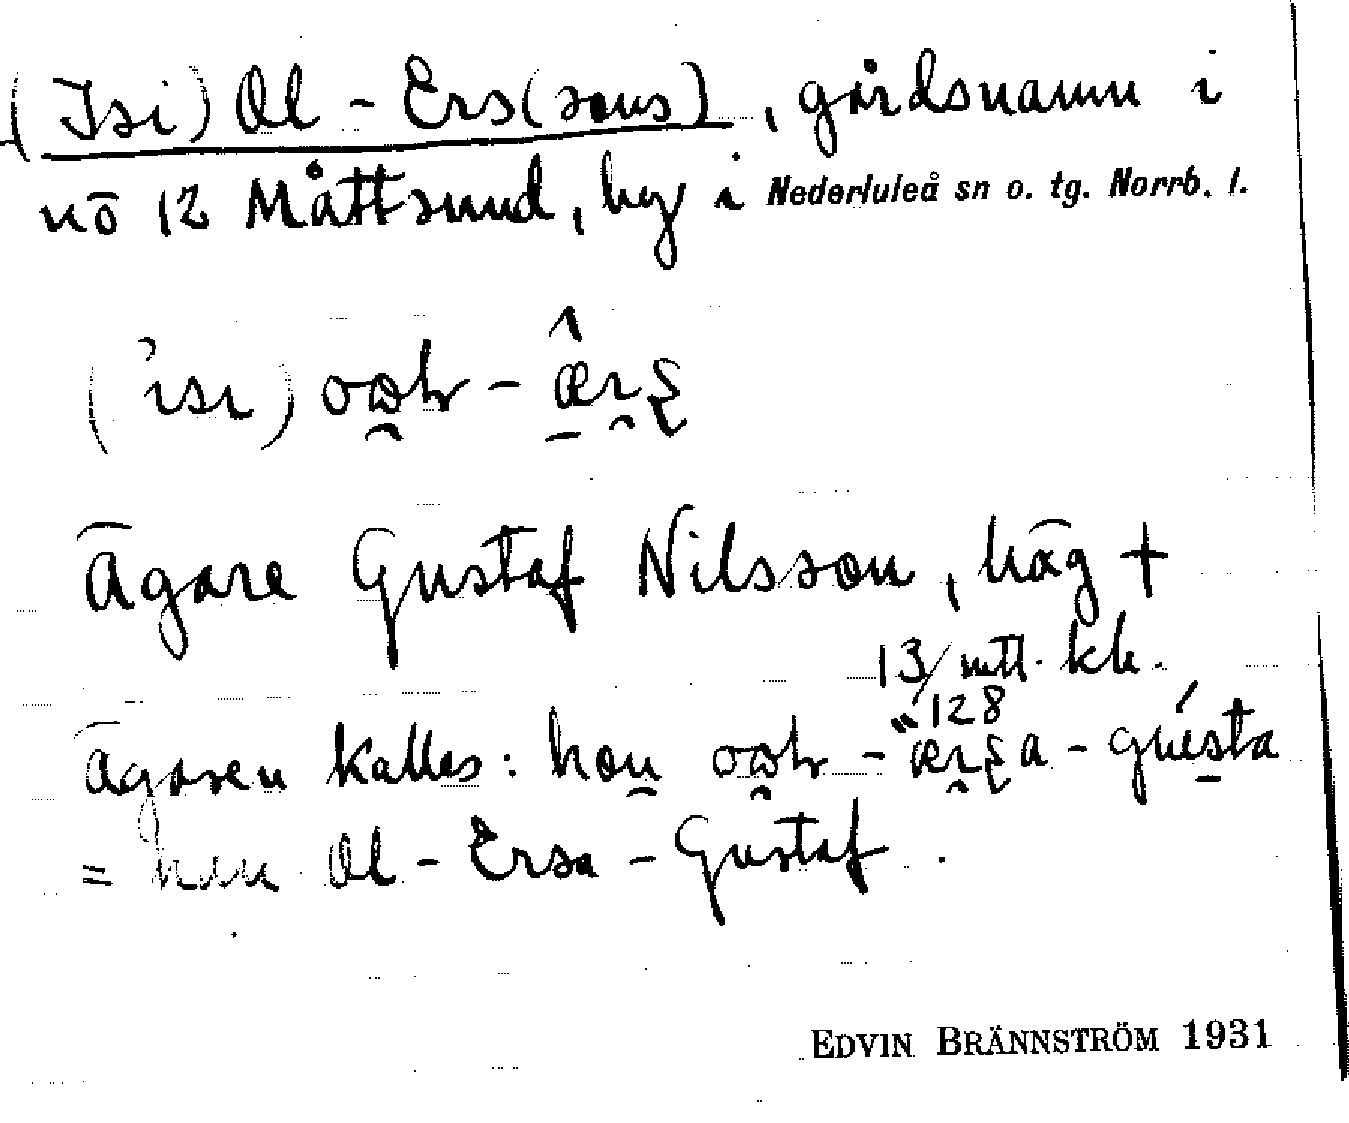 (Isi) Ol - Ers(sons), gårdsnamn i
nö 12 Måttsund, by i Nederluleå sn o. tg. Norrb. l.
Ägare Gustaf Nilsson, häg +
13/128 mtl. kh.
ägaren kallas: han
= han Ol - Ersa - Gustaf.
EDVIN BRÄNNSTRÖM 1931